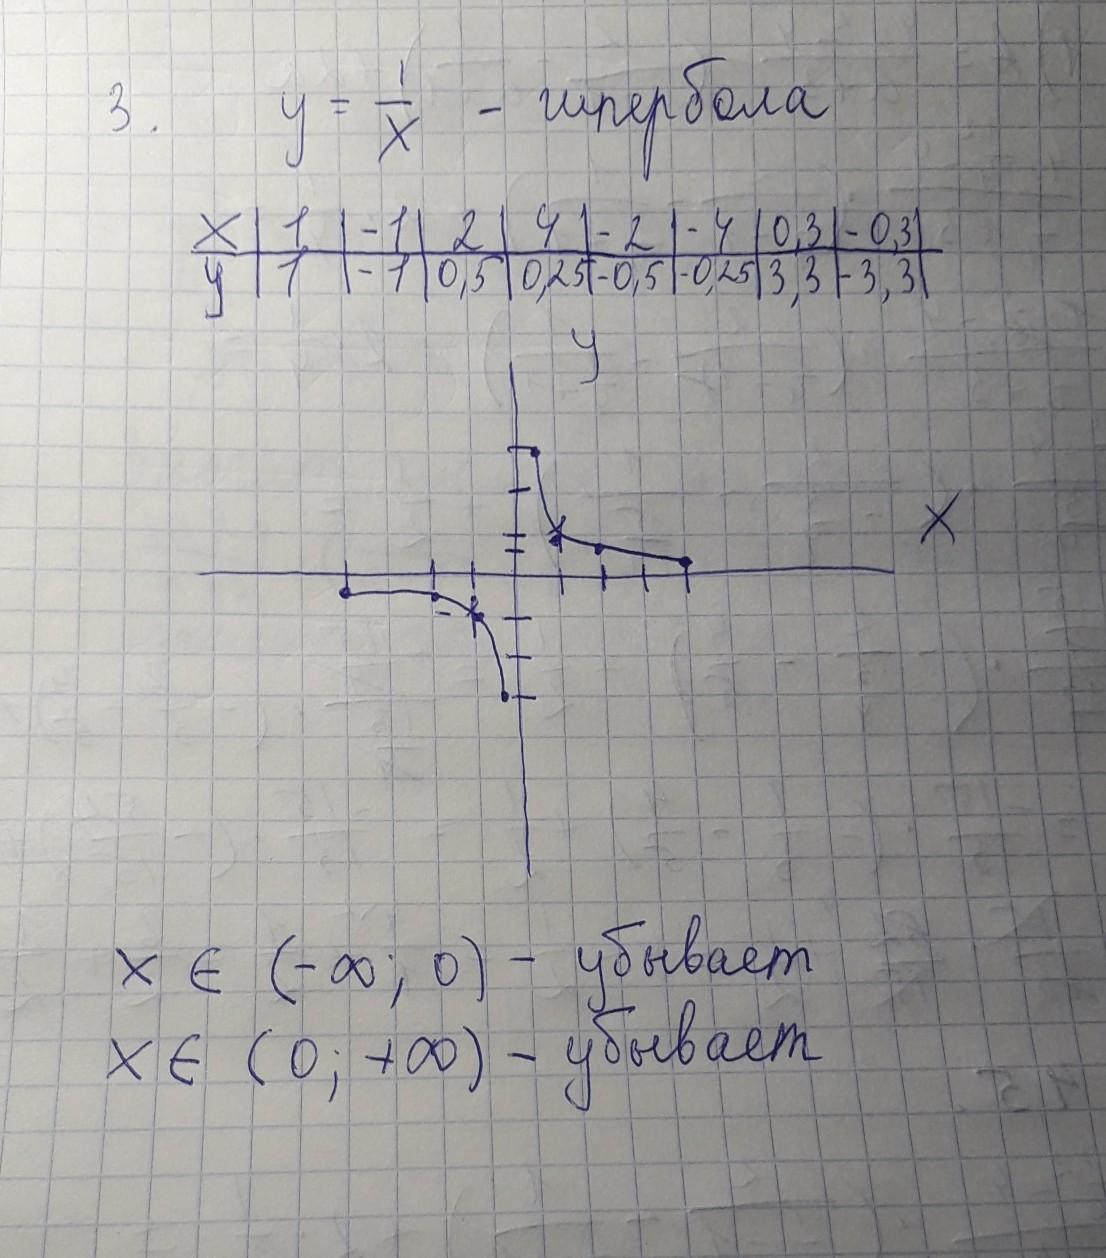 3. y = 1/x - гипербола
x | 1 | -1 | 2 | 4 | -2 | -4 | 0,3 | -0,3 |
y | 1 | -1 | 0,5 | 0,25 | -0,5 | -0,25 | 3,3 | -3,3 |
y
x
x ∈ (-∞; 0) - убывает
x ∈ (0; +∞) - убывает